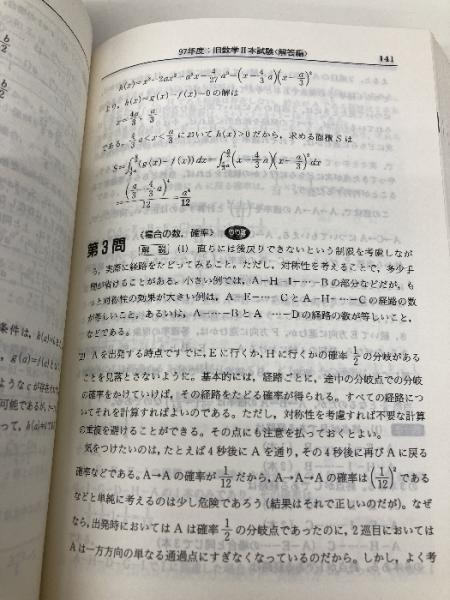 97年度:旧数学Ⅱ本試験〈解答編〉 141
h(x)=x³-2ax²-a²x-4/27a³=(x-4/3a)(x-a/3)²
より, h(x)=g(x)-f(x)=0の解は
x=4a/3, a/3
である. 4/3a<x<a/3において h(x)>0だから, 求める面積Sは
S=∫(g(x)-f(x))dx=∫(x-4/3a)(x-a/3)²dx
=(a/3-4/3a)⁴/12=a⁴/12
第3問 《場合の数, 確率》
解説 (1) 直ちには後戻りできないという制限を考慮しなが
ら, 実際に経路をたどってみること。ただし, 対称性を考えることで, 多少手
間が省けることがある。小さい例では, A-H-I-…-Bの部分などだが, も
っと対称性の効果が大きい例は, A-E-…-CとA-H-…-Cの経路の数
が等しいこと, あるいは, A-…-BとA-…-Dの経路の数が等しいこと,
などである。
(2) Aを出発する時点ですでに, Eに行くか, Hに行くかの確率1/2の分岐がある
ことを見落とさないように。基本的には, 経路ごとに, 途中の分岐点での分岐
の確率をかけていけば, その経路をたどる確率が得られる。すべての経路につ
いてそれを計算すればよいのである。ただし, 対称性を考慮すれば不要な計算
の重複を避けることができる。その点にも注意を払っておくとよい。
気をつけたいのは, たとえば4秒後にAを通り, その4秒後に再びAに戻る
確率などである。A→Aの確率が1/12だから, A→A→Aの確率は(1/12)²である
などと単純に考えるのは少し危険であろう(結果はそれで正しいのだが)。なぜ
なら, 出発時においてはAは確率1/2の分岐点であったのに, 2巡目においては
Aは一方方向の単なる通過点にすぎなくなっているのだから。しかし, よく考